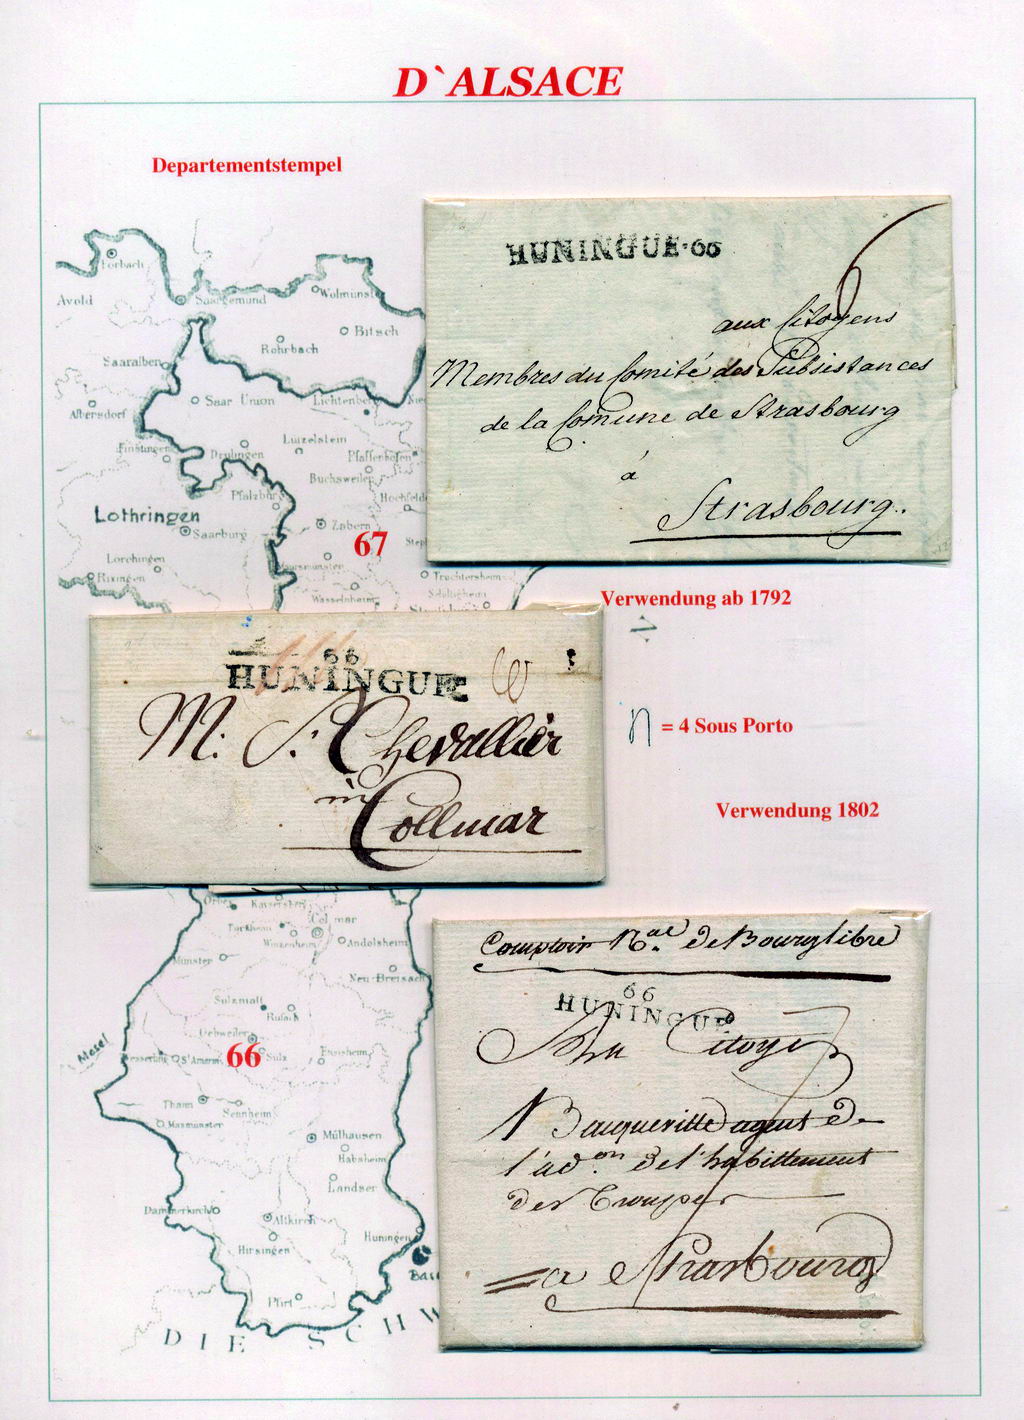 D`ALSACE
Departementstempel
HUNINGUE·66
6
aux Citoyens
Membres du Comité des Subsistances
de la Comune de Strasbourg
á
Strasbourg.
Forbach
Avold
Saargemünd
Wolmünst
Bitsch
Rohrbach
Saaralben
Saar Union
Lichtenber
Albersdorf
Lützelstein
Finstingen
Drulingen
Pfaffenhofen
Buchsweiler
Pfalzbur
Hochfeld
Lothringen
Zabern
Saarburg
67
Lorchingen
Rixingen
Truchtersheim
Wasselnheim
Verwendung ab 1792
66
HUNINGUE
M: S: Chevallier
in
Collmar
= 4 Sous Porto
Verwendung 1802
Kaysersbg
Colmar
Winzenheim
Andolsheim
Münster
Neu-Breisach
Sulzmatt
Rufach
Gebweiler
66
Mosel
Sulz
Ensisheim
Thann
Sennheim
Masmünster
Mülhausen
Habsheim
Landser
Dammerkirch
Altkirch
Huningen
Hirsingen
Bas
Pfirt
DIE SCHW
Comptoir Nal de Bourglibre
66
HUNINGUE
Au Citoyen
Bauqueville agent de
l'adon de l'habillement
des Troupes
= a Strasbourg